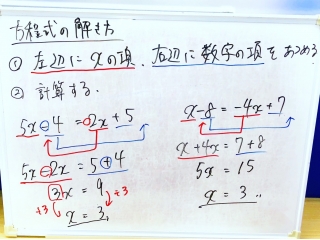 方程式の解き方
① 左辺に xの項、右辺に数字の項をあつめる
② 計算する.
5x-4 = 2x+5
5x-2x = 5+4
3x = 9
÷3 ÷3
x = 3,
x-8 = -4x+7
x+4x = 7+8
5x = 15
x = 3 ,,